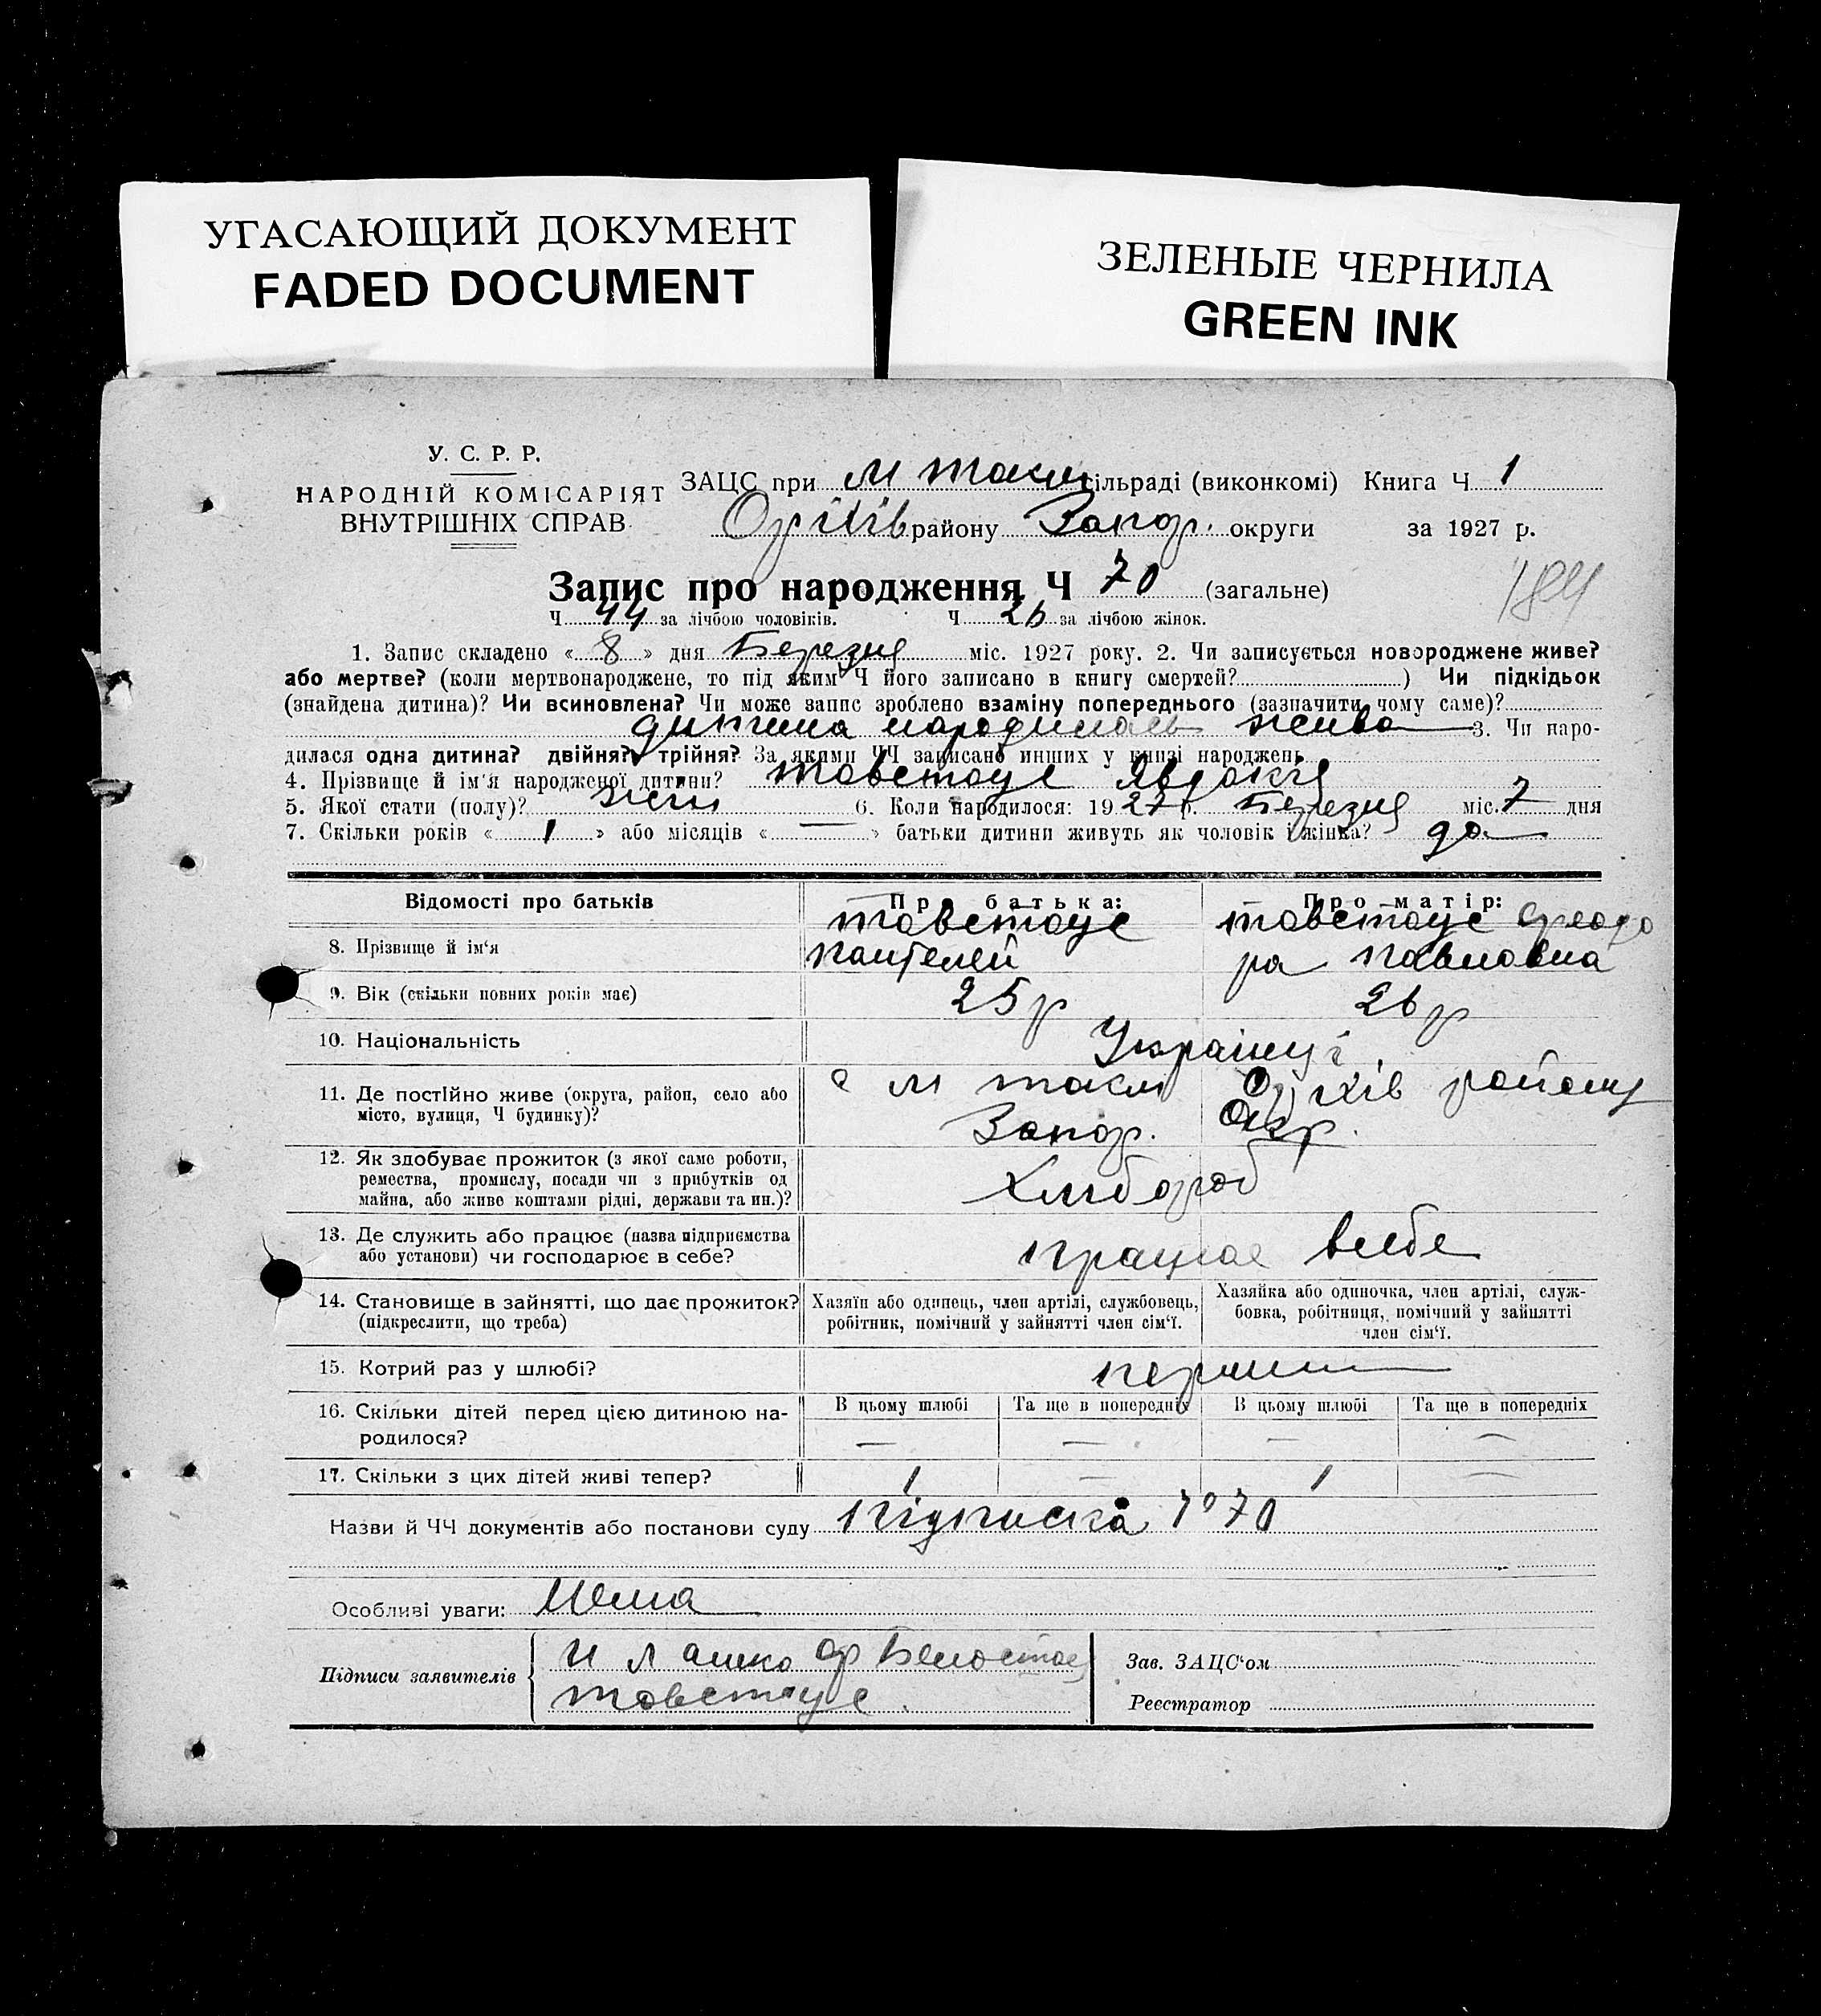 УГАСАЮЩИЙ ДОКУМЕНТ
FADED DOCUMENT
ЗЕЛЕНЫЕ ЧЕРНИЛА
GREEN INK
У. С. Р. Р.
НАРОДНІЙ КОМІСАРІЯТ
ВНУТРІШНІХ СПРАВ
ЗАЦС при М Токм сільраді (виконкомі) Книга Ч 1
Оріхів району Запор. округи за 1927 р.
Запис про народження Ч 70 (загальне)
184
Ч 44 за лічбою чоловіків. Ч 26 за лічбою жінок.
1. Запис складено « 8 » дня Березня міс. 1927 року. 2. Чи записується новороджене живе?
або мертве? (коли мертвонароджене, то під яким Ч його записано в книгу смертей? ) Чи підкідьок
(знайдена дитина)? Чи всиновлена? Чи може запис зроблено взаміну попереднього (зазначити чому саме)?
дитина народилась жива 3. Чи наро-
дилася одна дитина? двійня? трійня? За якими ЧЧ записано инших у книзі народжень
4. Прізвище й ім'я народженої дитини? Товстоус Явдокія
5. Якої стати (полу)? жін 6. Коли народилося: 1927 р. Березня міс. 7 дня
7. Скільки років « 1 » або місяців « — » батьки дитини живуть як чоловік і жінка? да
Відомості про батьків
Про батька:
Про матір:
8. Прізвище й ім'я
Товстоус
Пантелей
Товстоус Феодо
ра Павловна
9. Вік (скільки повних років має)
25 р
26 р
10. Національність
Українці
11. Де постійно живе (округа, район, село або
місто, вулиця, Ч будинку)?
с М Токм Оріхів району
Запор. Окр.
12. Як здобуває прожиток (з якої саме роботи,
ремества, промислу, посади чи з прибутків од
майна, або живе коштами рідні, держави та ин.)?
Хлібороб
13. Де служить або працює (назва підприємства
або установи) чи господарює в себе?
працює всебе
14. Становище в зайнятті, що дає прожиток?
(підкреслити, що треба)
Хазяїн або одинець, член артілі, службовець,
робітник, помічний у зайнятті член сім'ї.
Хазяйка або одиночка, член артілі, служ-
бовка, робітниця, помічний у зайнятті
член сім'ї.
15. Котрий раз у шлюбі?
перший
16. Скільки дітей перед цією дитиною на-
родилося?
В цьому шлюбі
Та ще в попередніх
В цьому шлюбі
Та ще в попередніх
— — — —
17. Скільки з цих дітей живі тепер?
1 — 1 —
Назви й ЧЧ документів або постанови суду підписка № 70
Особливі уваги: Нема
Підписи заявителів
Товстоус
Зав. ЗАЦС'ом
Реєстратор